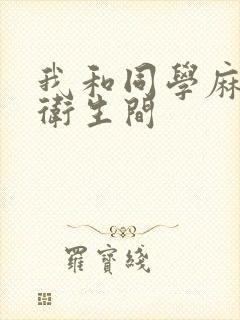 我和同學麻
衛生間
羅寶綫